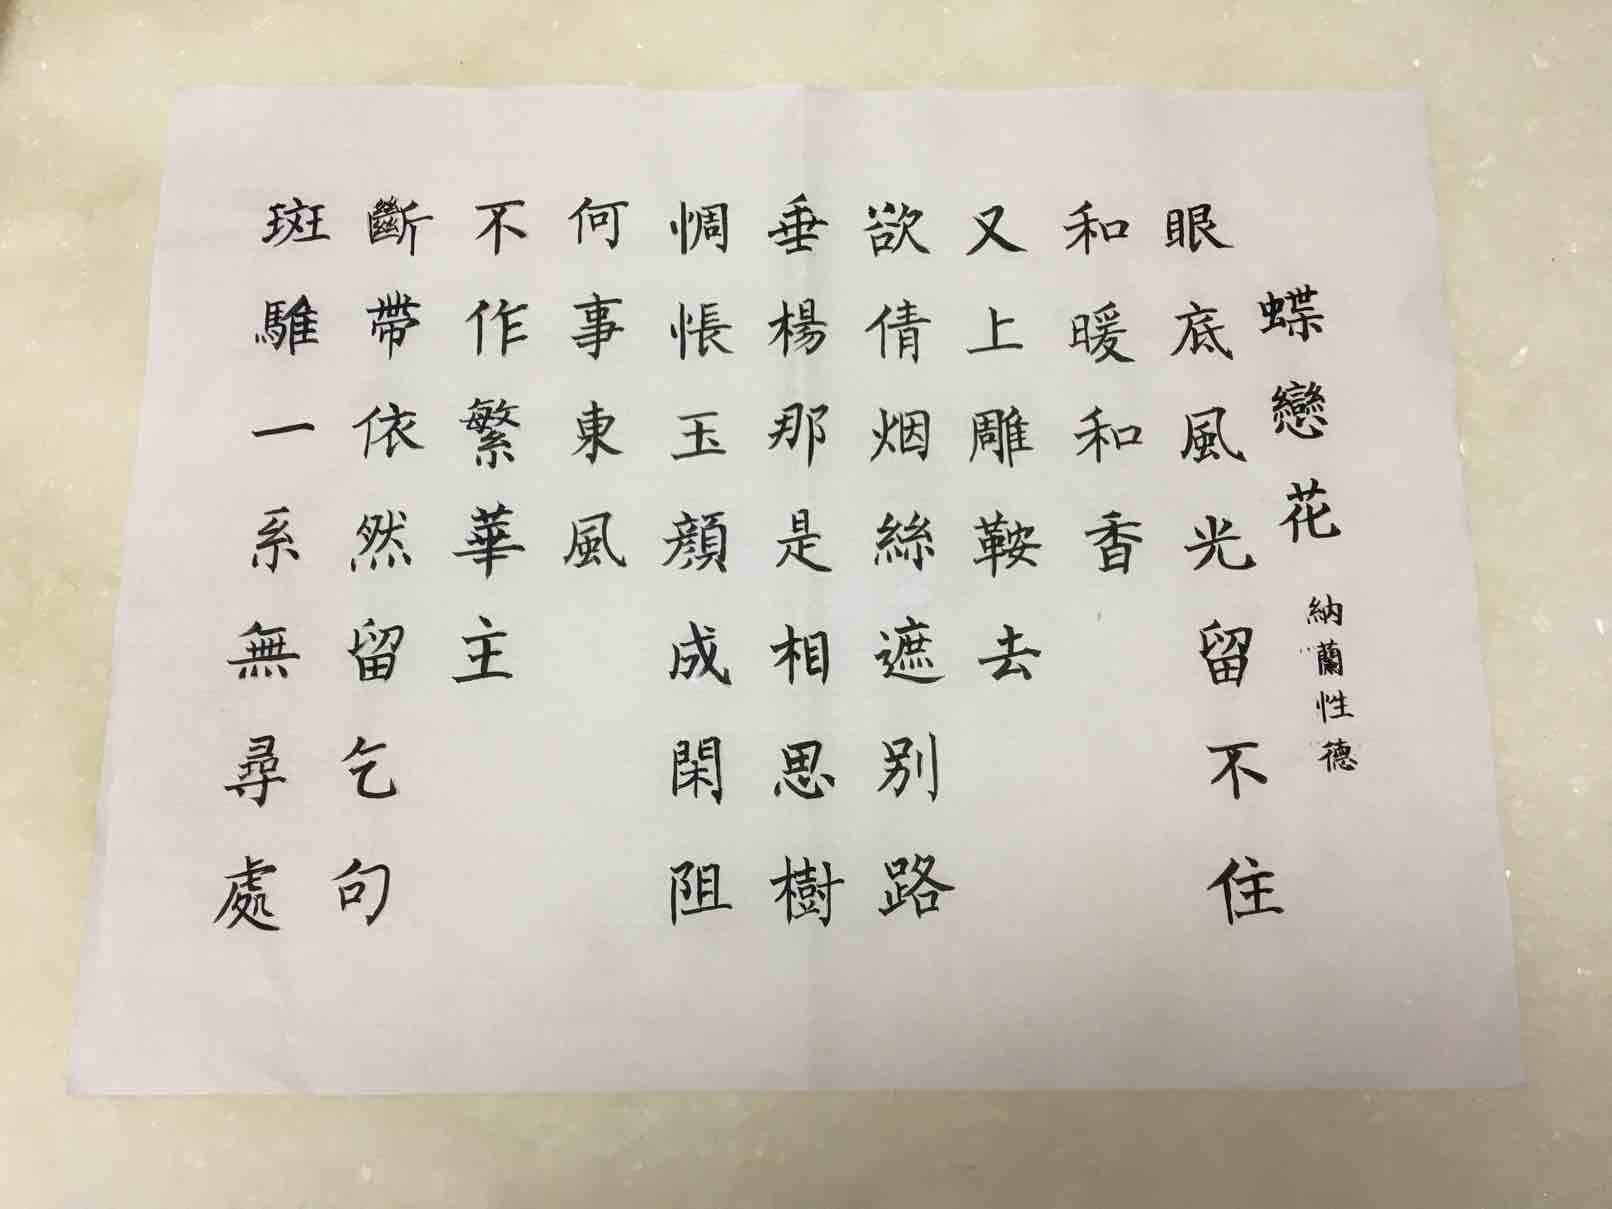 蝶戀花
納蘭性德
眼底風光留不住
和暖和香
又上雕鞍去
欲倩烟絲遮別路
垂楊那是相思樹
惆悵玉顏成閑阻
何事東風
不作繁華主
斷帶依然留乞句
斑騅一系無尋處